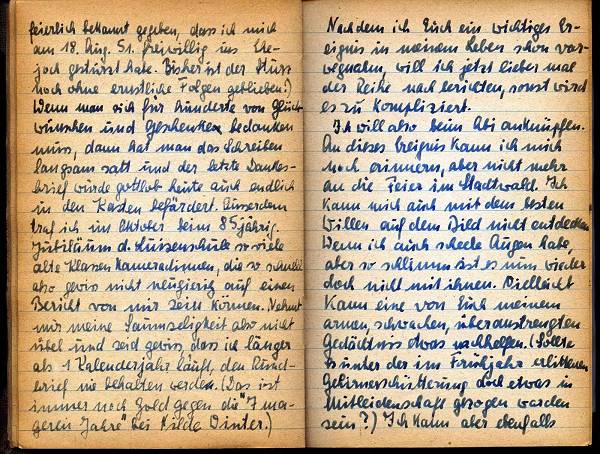 feierlich bekannt gegeben, dass ich mich
am 18. Aug. 51. freiwillig ins Ehe-
joch gestürzt habe. Bisher ist der Sturz
noch ohne ernstliche Folgen geblieben!)
Wenn man sich für hunderte von Glück-
wünschen und Geschenken bedanken
muss, dann hat man das Schreiben
langsam satt und der letzte Dankes-
brief wurde gottlob heute auch endlich
in den Kasten befördert. Ausserdem
traf ich im Oktober beim 85 jährig.
Jubiläum d. Luisenschule so viele
alte Klassenkameradinnen, die so
also gewis nicht neugierig auf einen
Bericht von mir sein können. Nehmt
mir meine Saumseligkeit also nicht
übel und seid gewiss, dass ich länger
als 1 Kalenderjahr läuft, den Rund-
brief nie behalten werden. (Das ist
immer noch Gold gegen die "7 ma-
geren Jahre" bei Hilde Winter.)
Nachdem ich Euch ein wichtiges Er-
eignis in meinem Leben schon vor-
wegnahm, will ich jetzt lieber mal
der Reihe nach berichten, sonst wird
es zu kompliziert.
Ich will also beim Abi anknüpfen.
An dieses Ereignis kann ich mich
noch erinnern, aber nicht mehr
an die Feier im Stadtwald. Ich
kann mich auch mit dem besten
Willen auf dem Bild nicht entdecken.
Wenn ich auch schlechte Augen habe,
aber so schlimm ist es nun wieder
doch nicht mit ihnen. Vielleicht
kann eine von Euch meinem
armen, schwachen, überanstrengten
Gedächtnis etwas nachhelfen. (Sollte
es unter der im Frühjahr erlittenen
Gehirnerschütterung doch etwas in
Mitleidenschaft gezogen worden
sein?) Ich kann aber ebenfalls